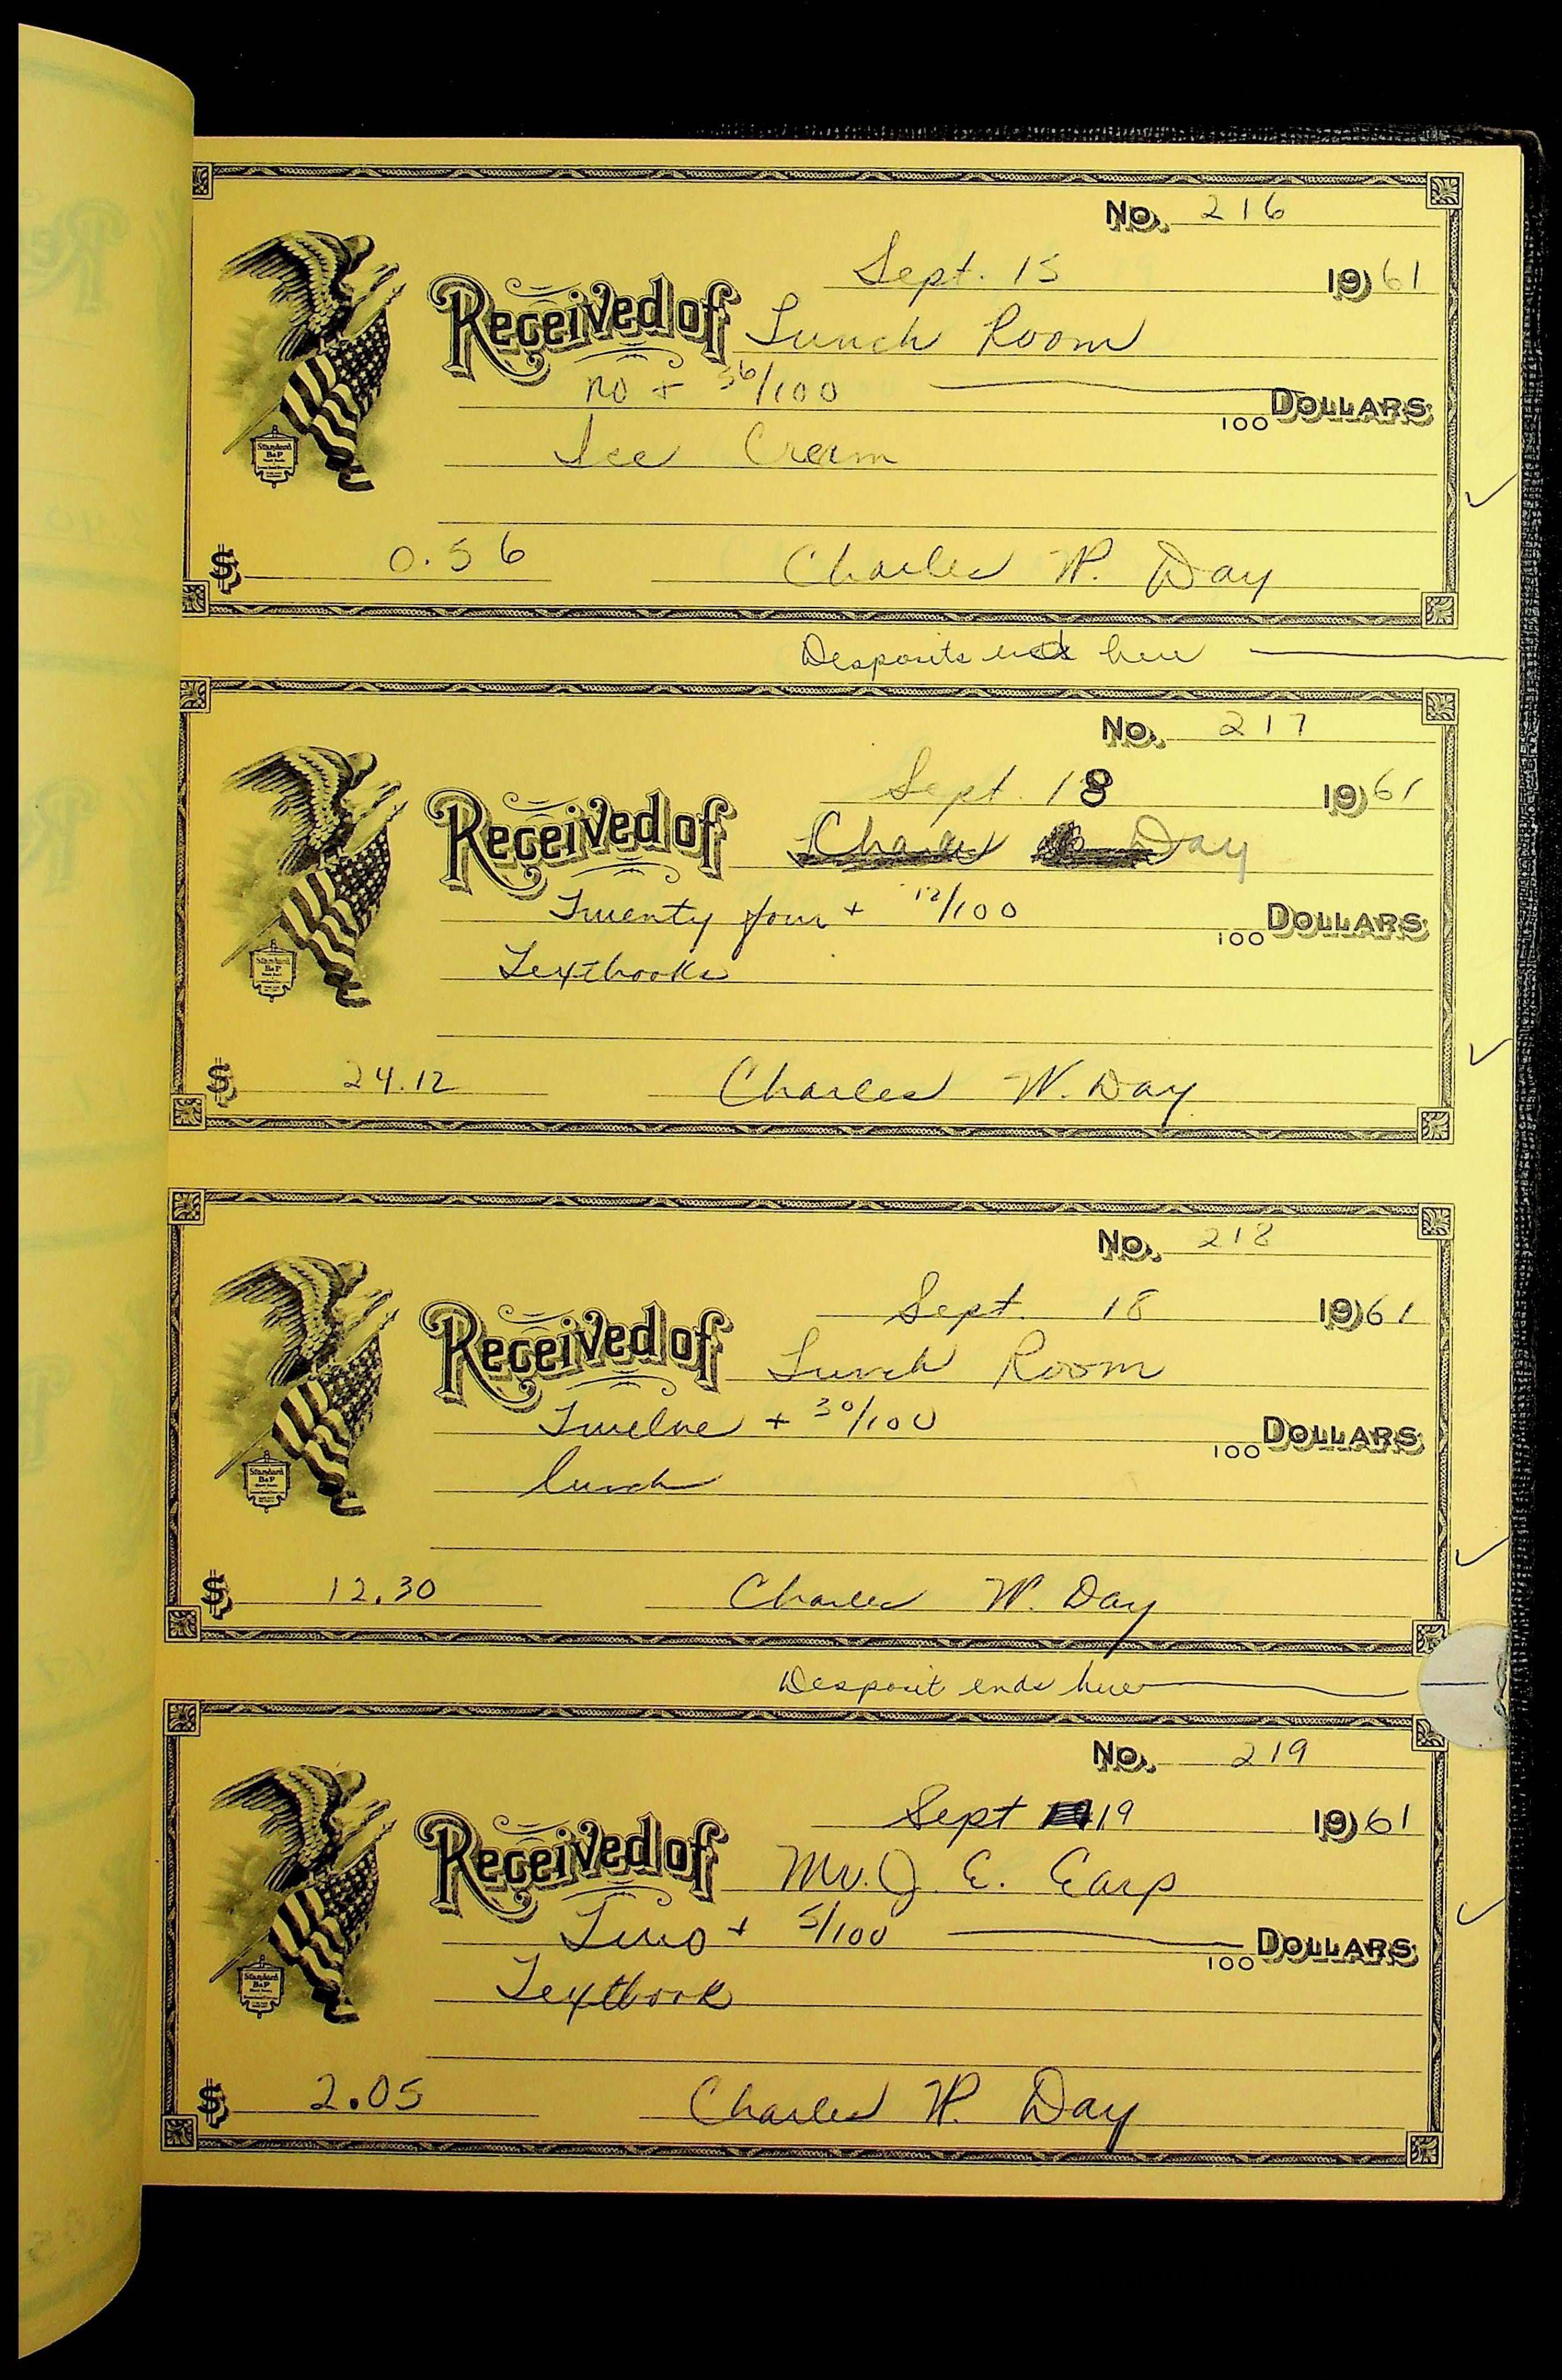 No. 216
Sept. 15 1961
Received of Lunch Room
no + 56/100 100 DOLLARS
Ice Cream
$ 0.56 Charles W. Day
Desposits end here
No. 217
Sept. 18 1961
Received of Charles Day
Twenty four + 12/100 100 DOLLARS
Textbooks
$ 24.12 Charles W. Day
No. 218
Sept. 18 1961
Received of Lunch Room
Twelve + 30/100 100 DOLLARS
lunch
$ 12.30 Charles W. Day
Desposit ends here
No. 219
Sept 19 1961
Received of Mr. J. E. Earp
Two + 5/100 100 DOLLARS
Textbook
$ 2.05 Charles W. Day